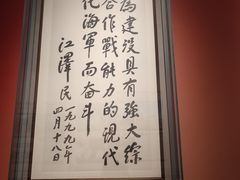 為建設具有強大綜
合作戰能力的現代
化海軍而奮斗
江澤民
一九九九年
四月十八日